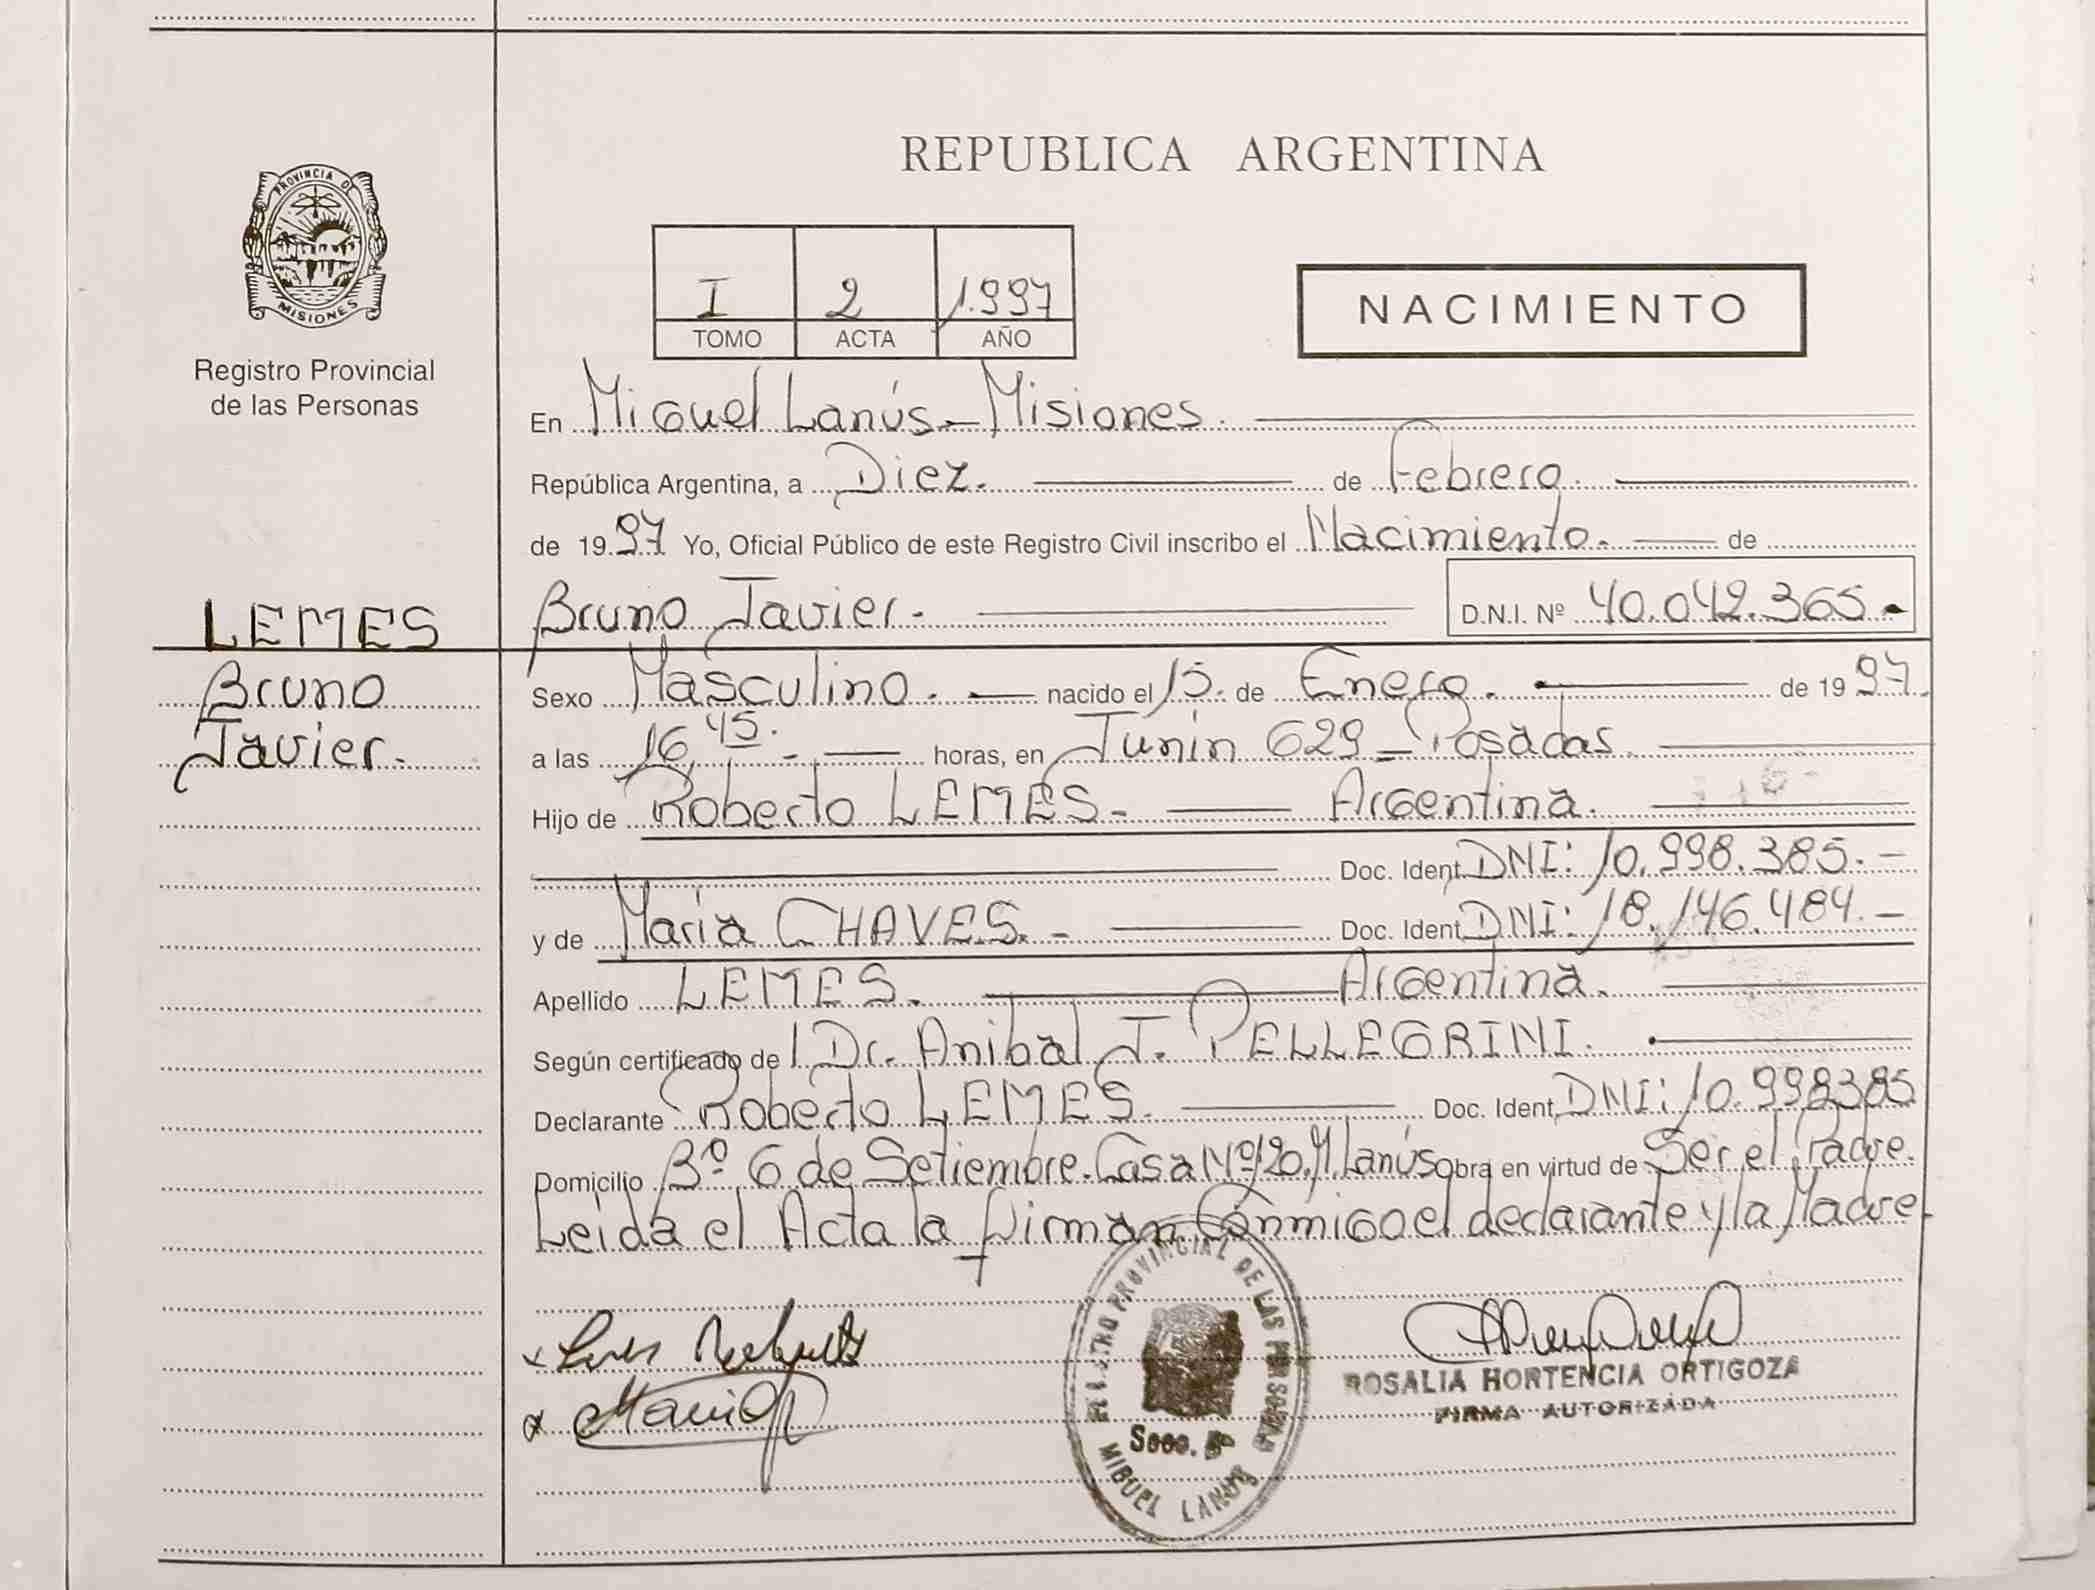 PROVINCIA DE
MISIONES
Registro Provincial
de las Personas
LEMES
Bruno
Javier.
REPUBLICA ARGENTINA
I 2 1.997
TOMO ACTA AÑO
NACIMIENTO
En Miguel Lanús - Misiones.
República Argentina, a Diez. de Febrero.
de 1997 Yo, Oficial Público de este Registro Civil inscribo el Nacimiento. de
Bruno Javier. D.N.I. Nº 40.042.365.
Sexo Masculino. nacido el 15. de Enero. de 1997.
a las 16,45. horas, en Junín 629 - Posadas.
Hijo de Roberto LEMES. - Argentina.
Doc. Ident. DNI: 10.998.385. -
y de Maria CHAVES. - Doc. Ident. DNI: 18.146.484. -
Apellido LEMES. Argentina.
Según certificado de l Dr. Anibal J. PELLEGRINI.
Declarante Roberto LEMES. Doc. Ident. DNI: 10.998385
Domicilio Bº 6 de Setiembre. Casa Nº 120. M. Lanús obra en virtud de Ser el Padre.
Leida el Acta la firman Conmigo el declarante y la Madre
REGISTRO PROVINCIAL DE LAS PERSONAS
Secc. 5ª
MIGUEL LANUS
ROSALIA HORTENCIA ORTIGOZA
FIRMA AUTORIZADA